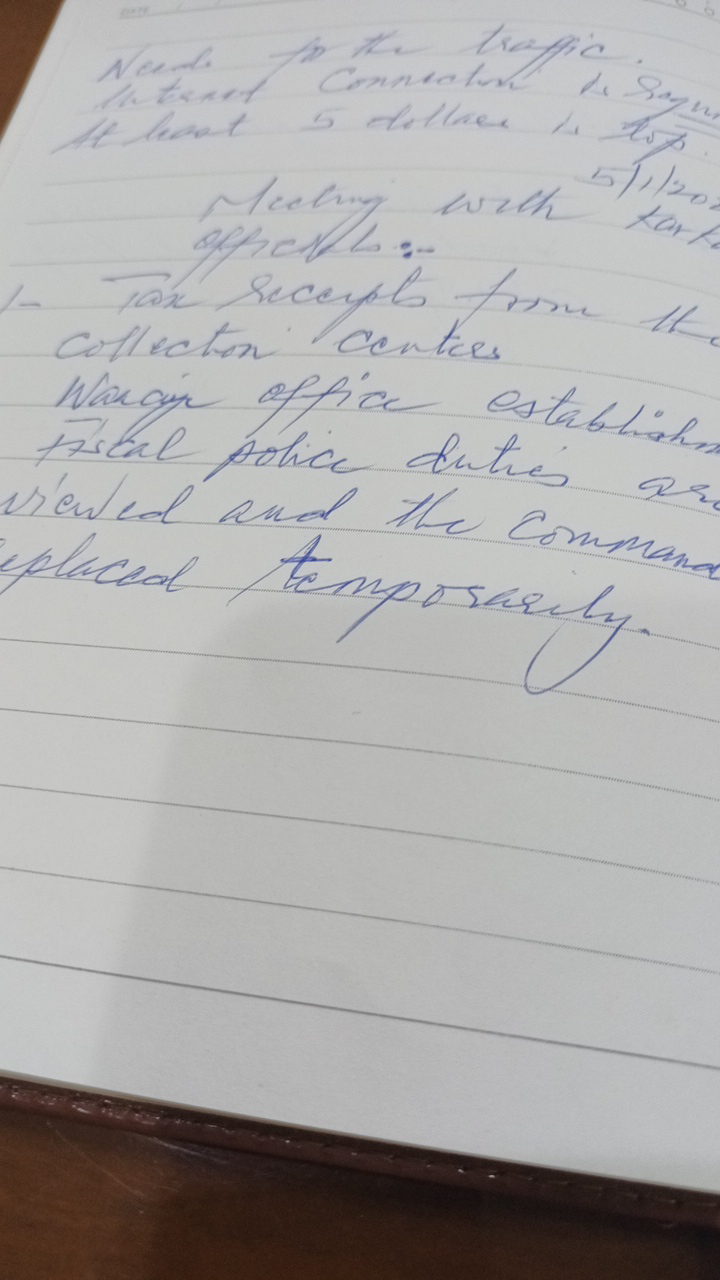 Needs for the traffic.
Internet Connection is
At least 5 dollars is top.
5/1/202
Meeting with
Officials:-
1- Tax receipts from the
collection centres
office establishm
Fiscal police duties are
viewed and the command
eplaced temporarily.